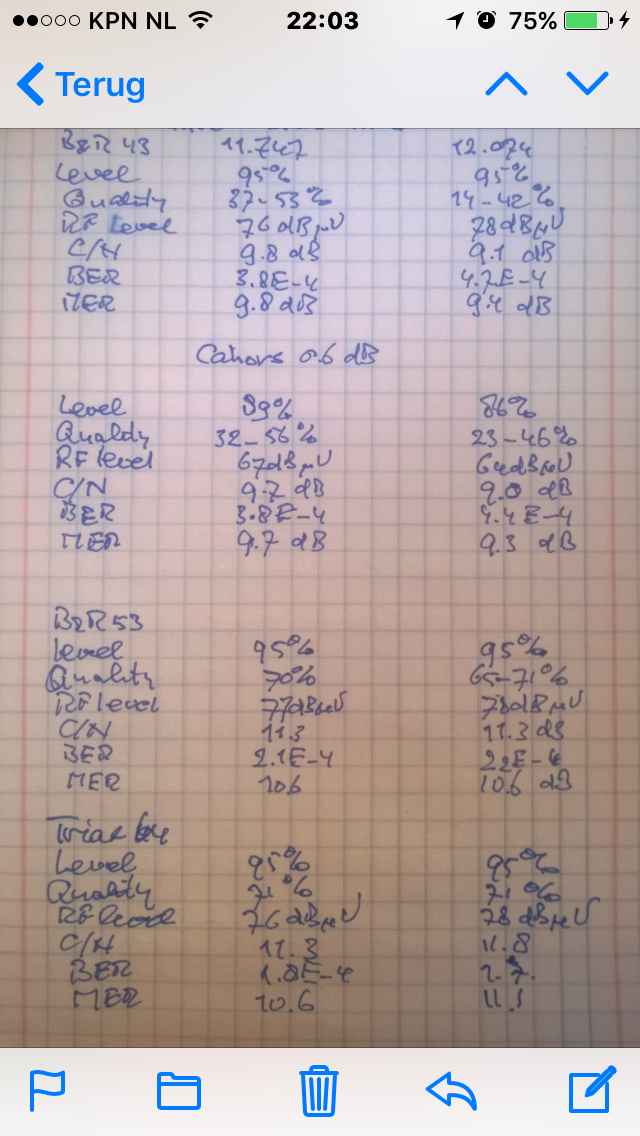 KPN NL 22:03 75%
Terug
B2R 43 11.747 12.074
Level 95% 95%
Quality 37-53% 14-42%
RF Level 76 dBµV 78dBµV
C/N 9.8 dB 9.1 dB
BER 3.8E-4 4.7E-4
MER 9.8 dB 9.4 dB
Cahors 0.6 dB
Level 89% 86%
Quality 32-56% 23-46%
RF level 67dBµV 64dBµV
C/N 9.7 dB 9.0 dB
BER 3.8E-4 4.4E-4
MER 9.7 dB 9.3 dB
B2R 53
Level 95% 95%
Quality 70% 65-71%
RF level 77dBµV 78dBµV
C/N 11.3 11.3 dB
BER 2.1E-4 2.2E-4
MER 10.6 10.6 dB
Triax 64
Level 95% 95%
Quality 71% 71%
RF level 76 dBµV 78dBµV
C/N 11.3 11.8
BER 1.8E-4
MER 10.6 11.1